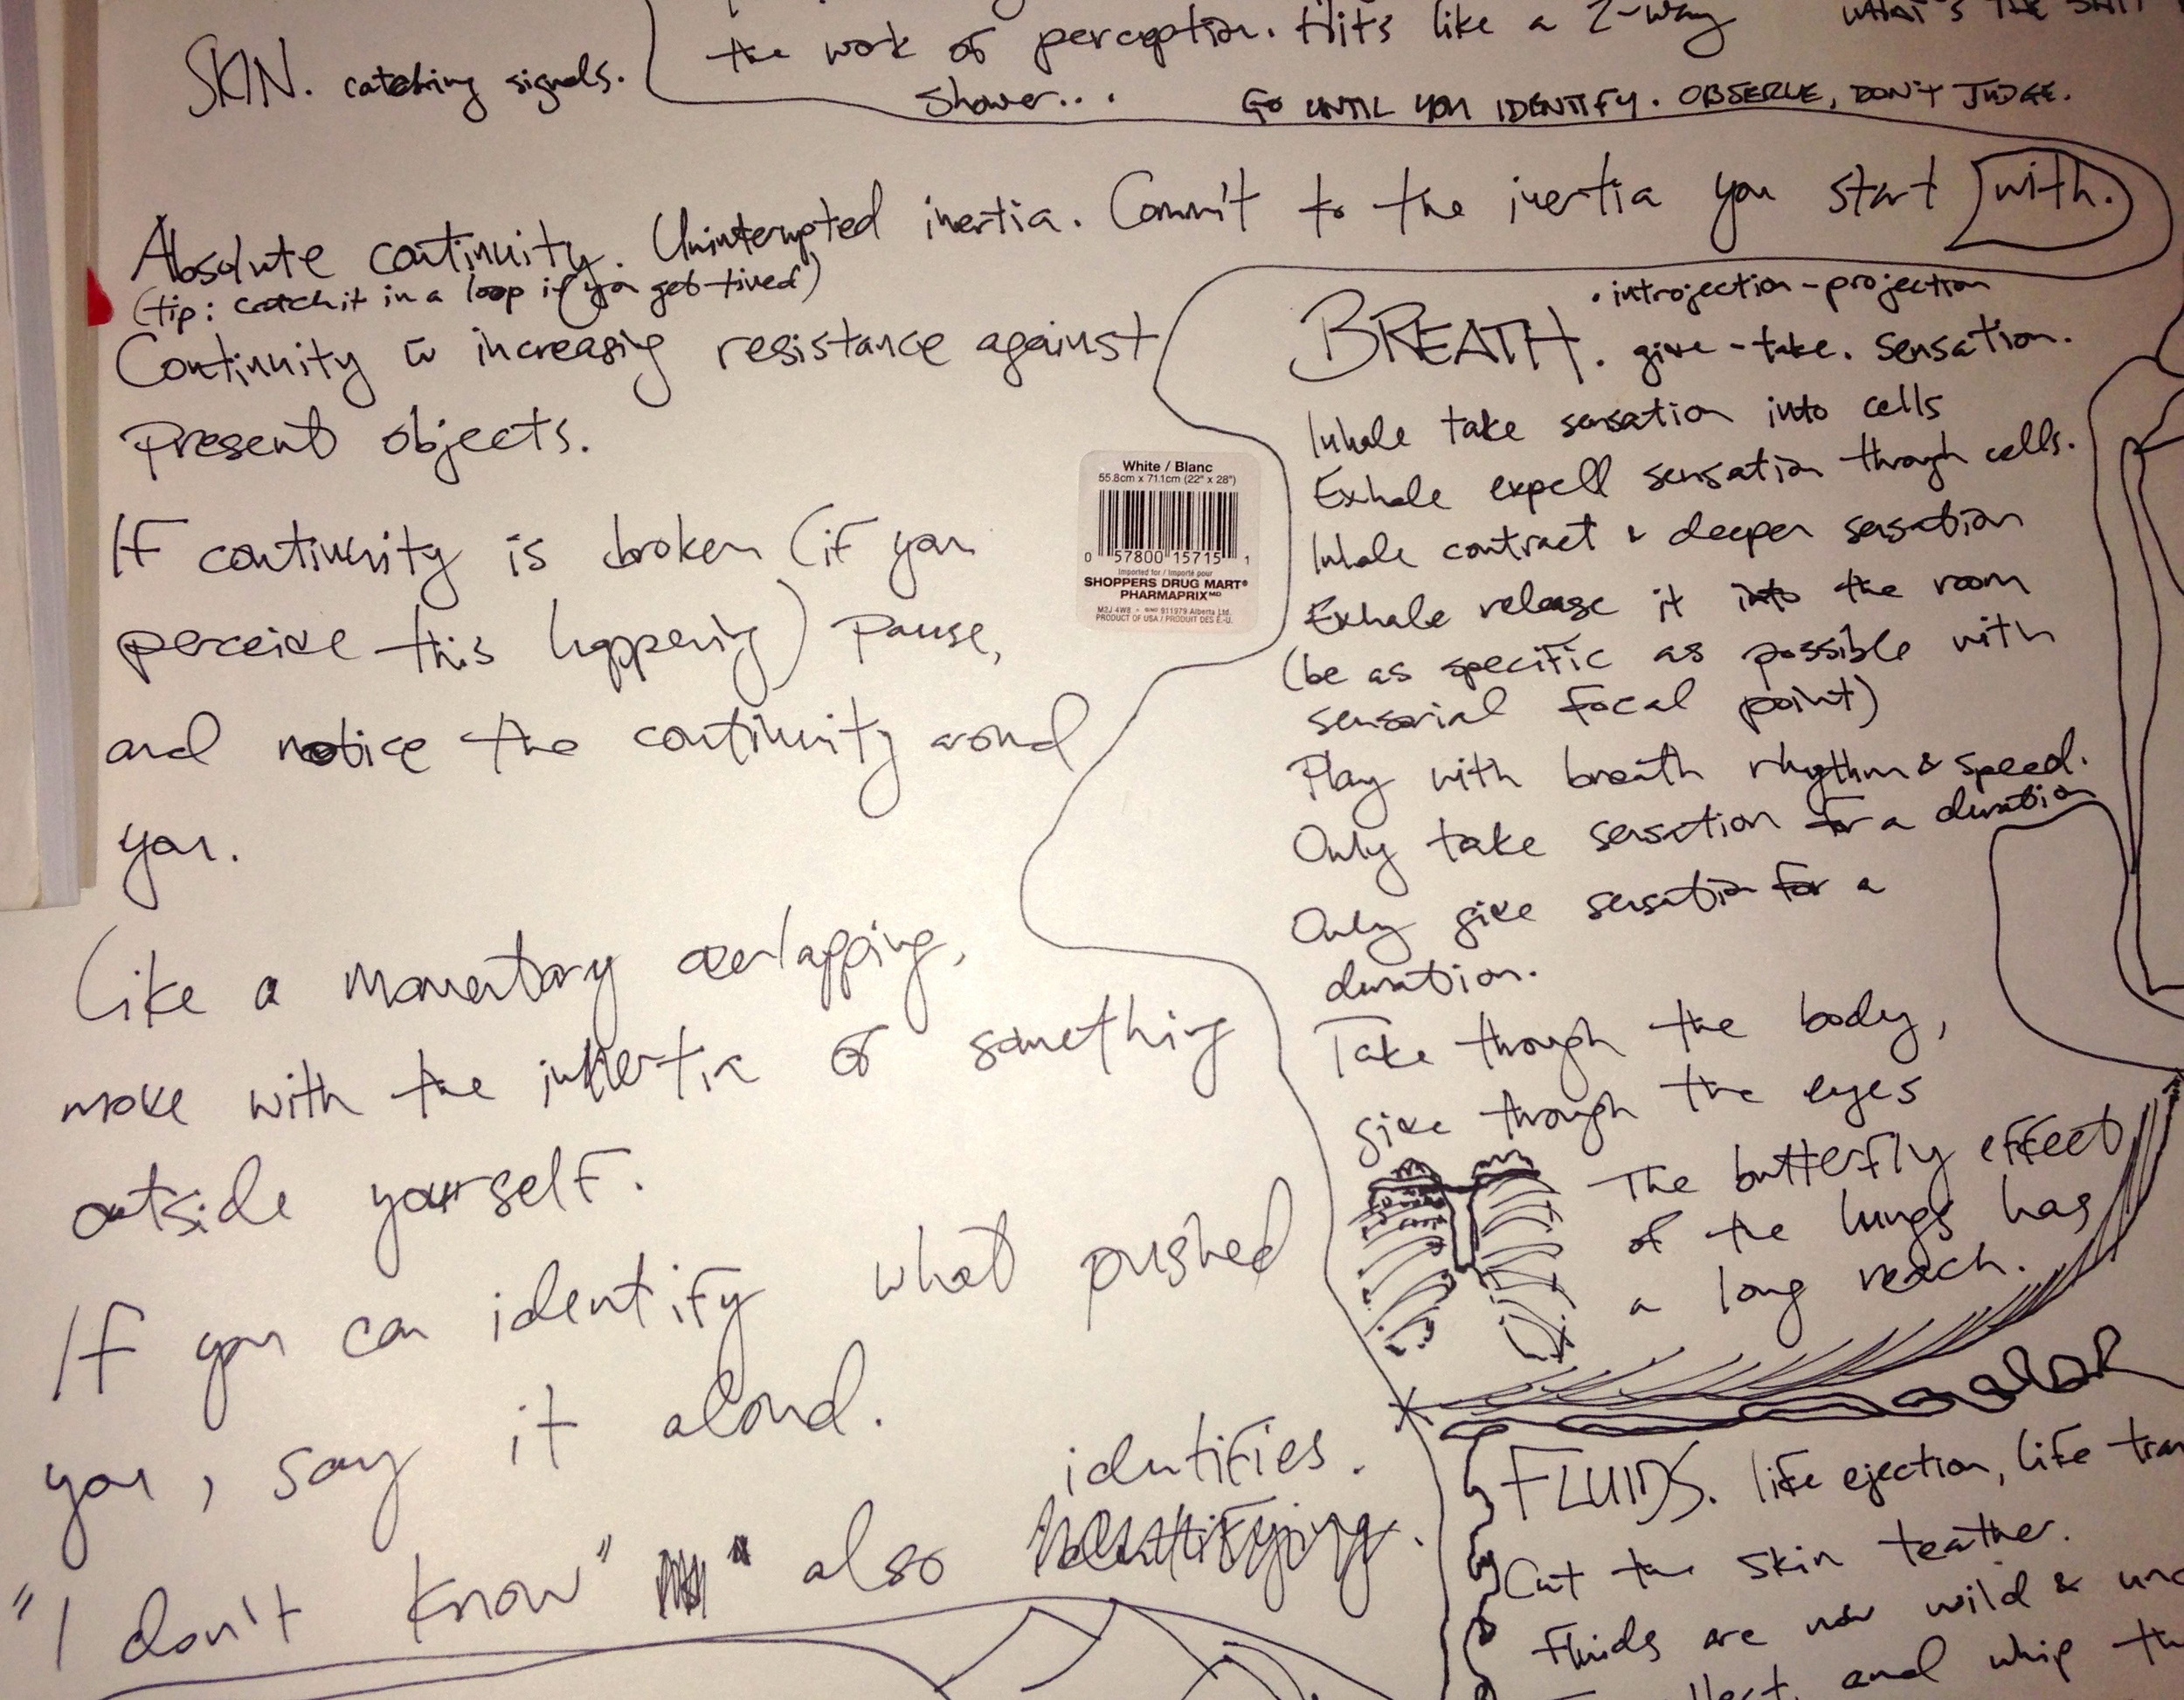 SKIN. catching signals.
the work of perception. Hits like a 2-way
shower...
WHAT'S THE
GO UNTIL YOU IDENTIFY. OBSERVE, DON'T JUDGE.
Absolute continuity. Uninterupted inertia. Commit to the inertia you start with.
(tip: catch it in a loop if you get tired)
Continuity is increasing resistance against
present objects.
If continuity is broken (if you
perceive this happening) pause,
and notice the continuity around
you.
Like a momentary overlapping,
move with the inertia of something
outside yourself.
If you can identify what pushed
you, say it aloud.
"I don't know" also identifies.
White / Blanc
55.8cm x 71.1cm (22" x 28")
0 57800 15715 1
Imported for / Importé pour
SHOPPERS DRUG MART®
PHARMAPRIX MD
M2J 4W8 • 911979 Alberta Ltd.
PRODUCT OF USA / PRODUIT DES É.-U.
BREATH. • introjection - projection
give - take. sensation.
Inhale take sensation into cells
Exhale expell sensation through cells.
Inhale contract & deeper sensation
Exhale release it into the room
(be as specific as possible with
sensorial focal point)
Play with breath rhythm & speed.
Only take sensation for a duration
Only give sensation for a
duration.
Take through the body,
give through the eyes
The butterfly effect
of the lungs has
a long reach.
FLUIDS. life ejection, life
Cut the skin teather.
Fluids are now wild &
and whip